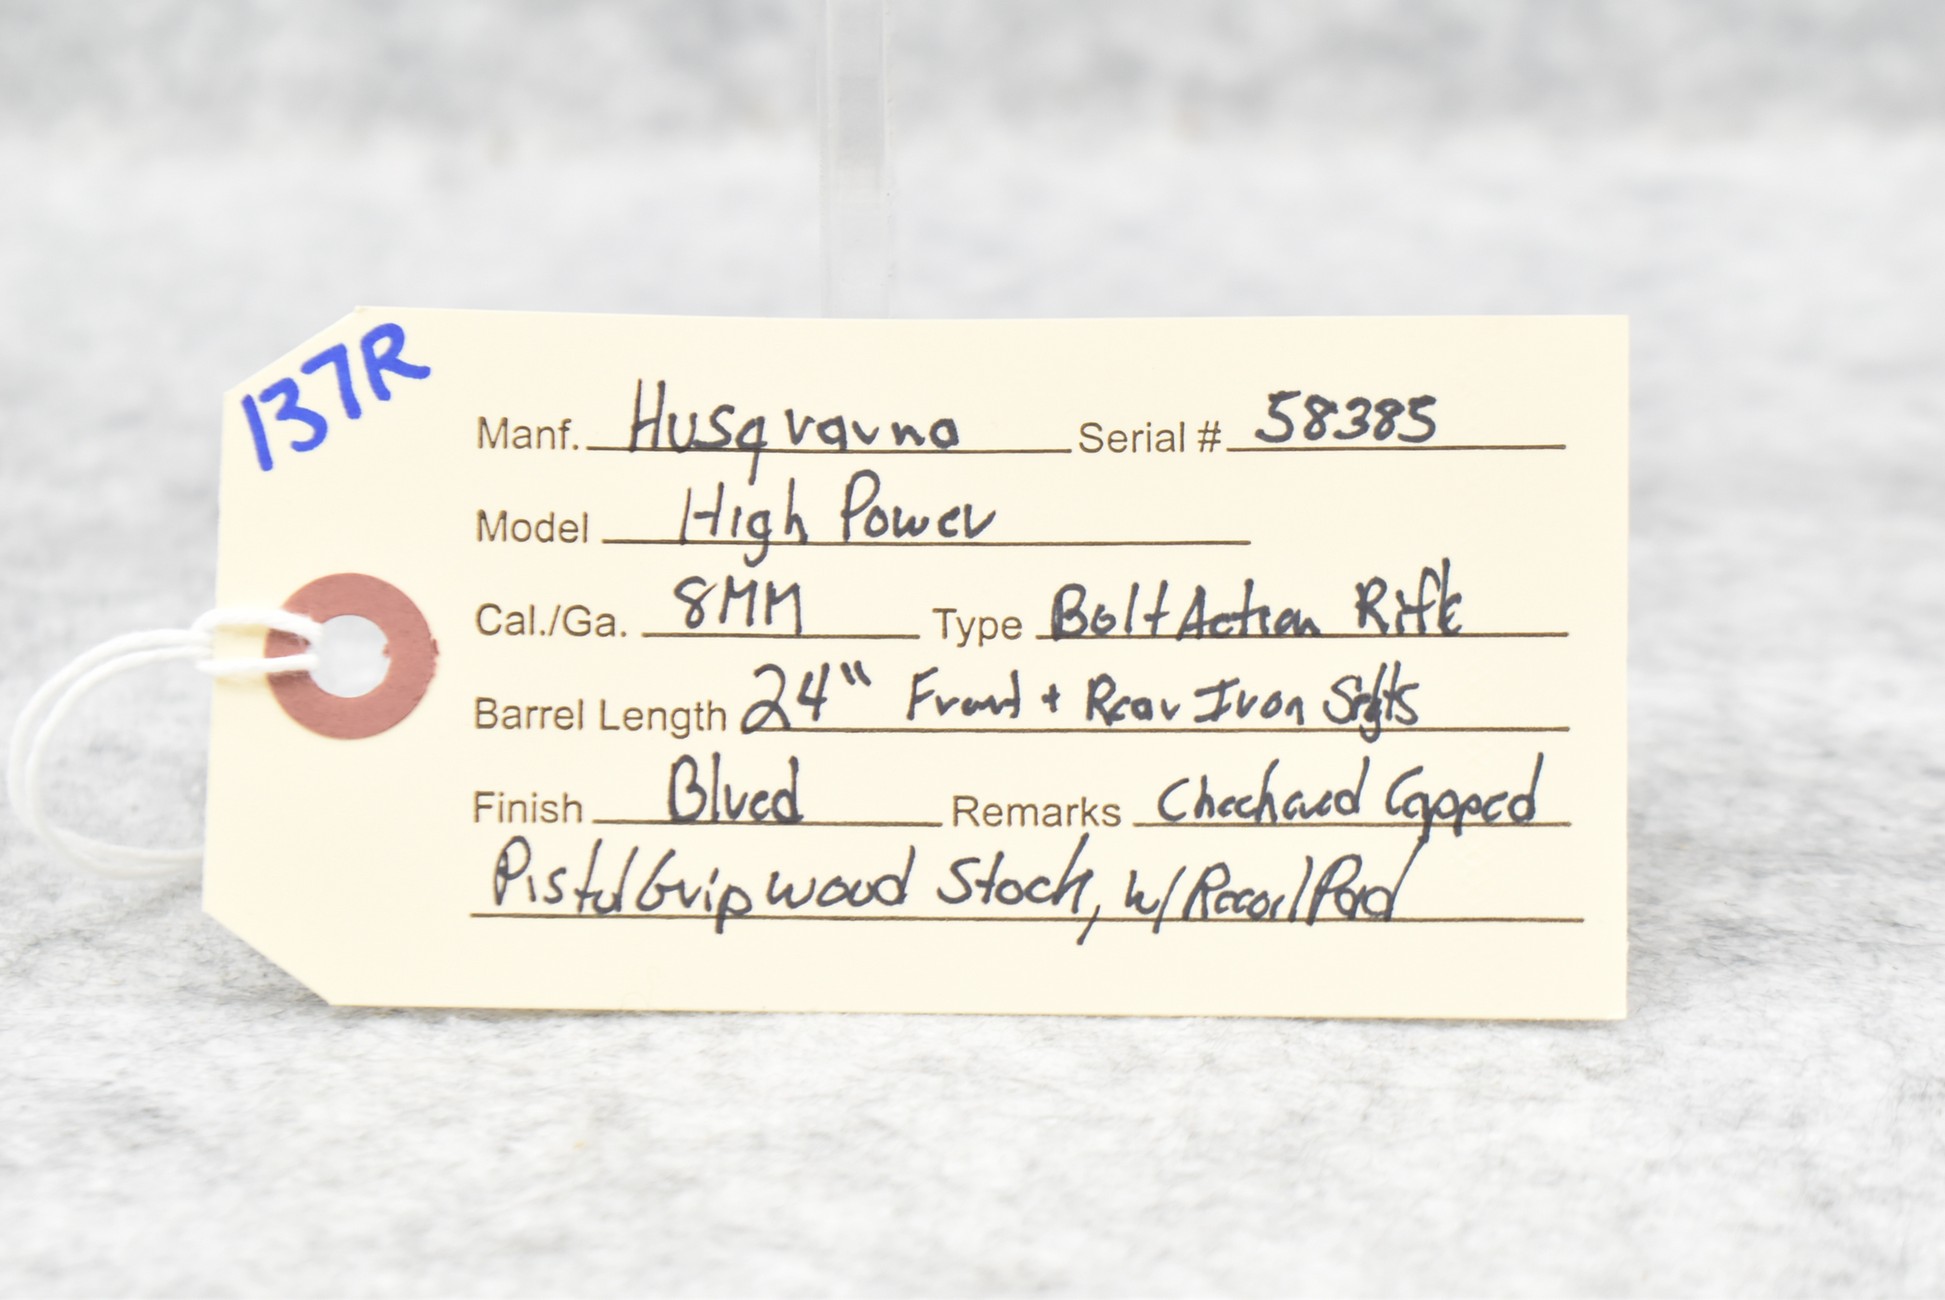 137R
Manf. Husqvavna Serial # 58385
Model High Power
Cal./Ga. 8MM Type Bolt Action Rifle
Barrel Length 24" Front + Rear Iron Sights
Finish Blued Remarks Checkered Capped
Pistol Grip wood Stock, w/ Recoil Pad